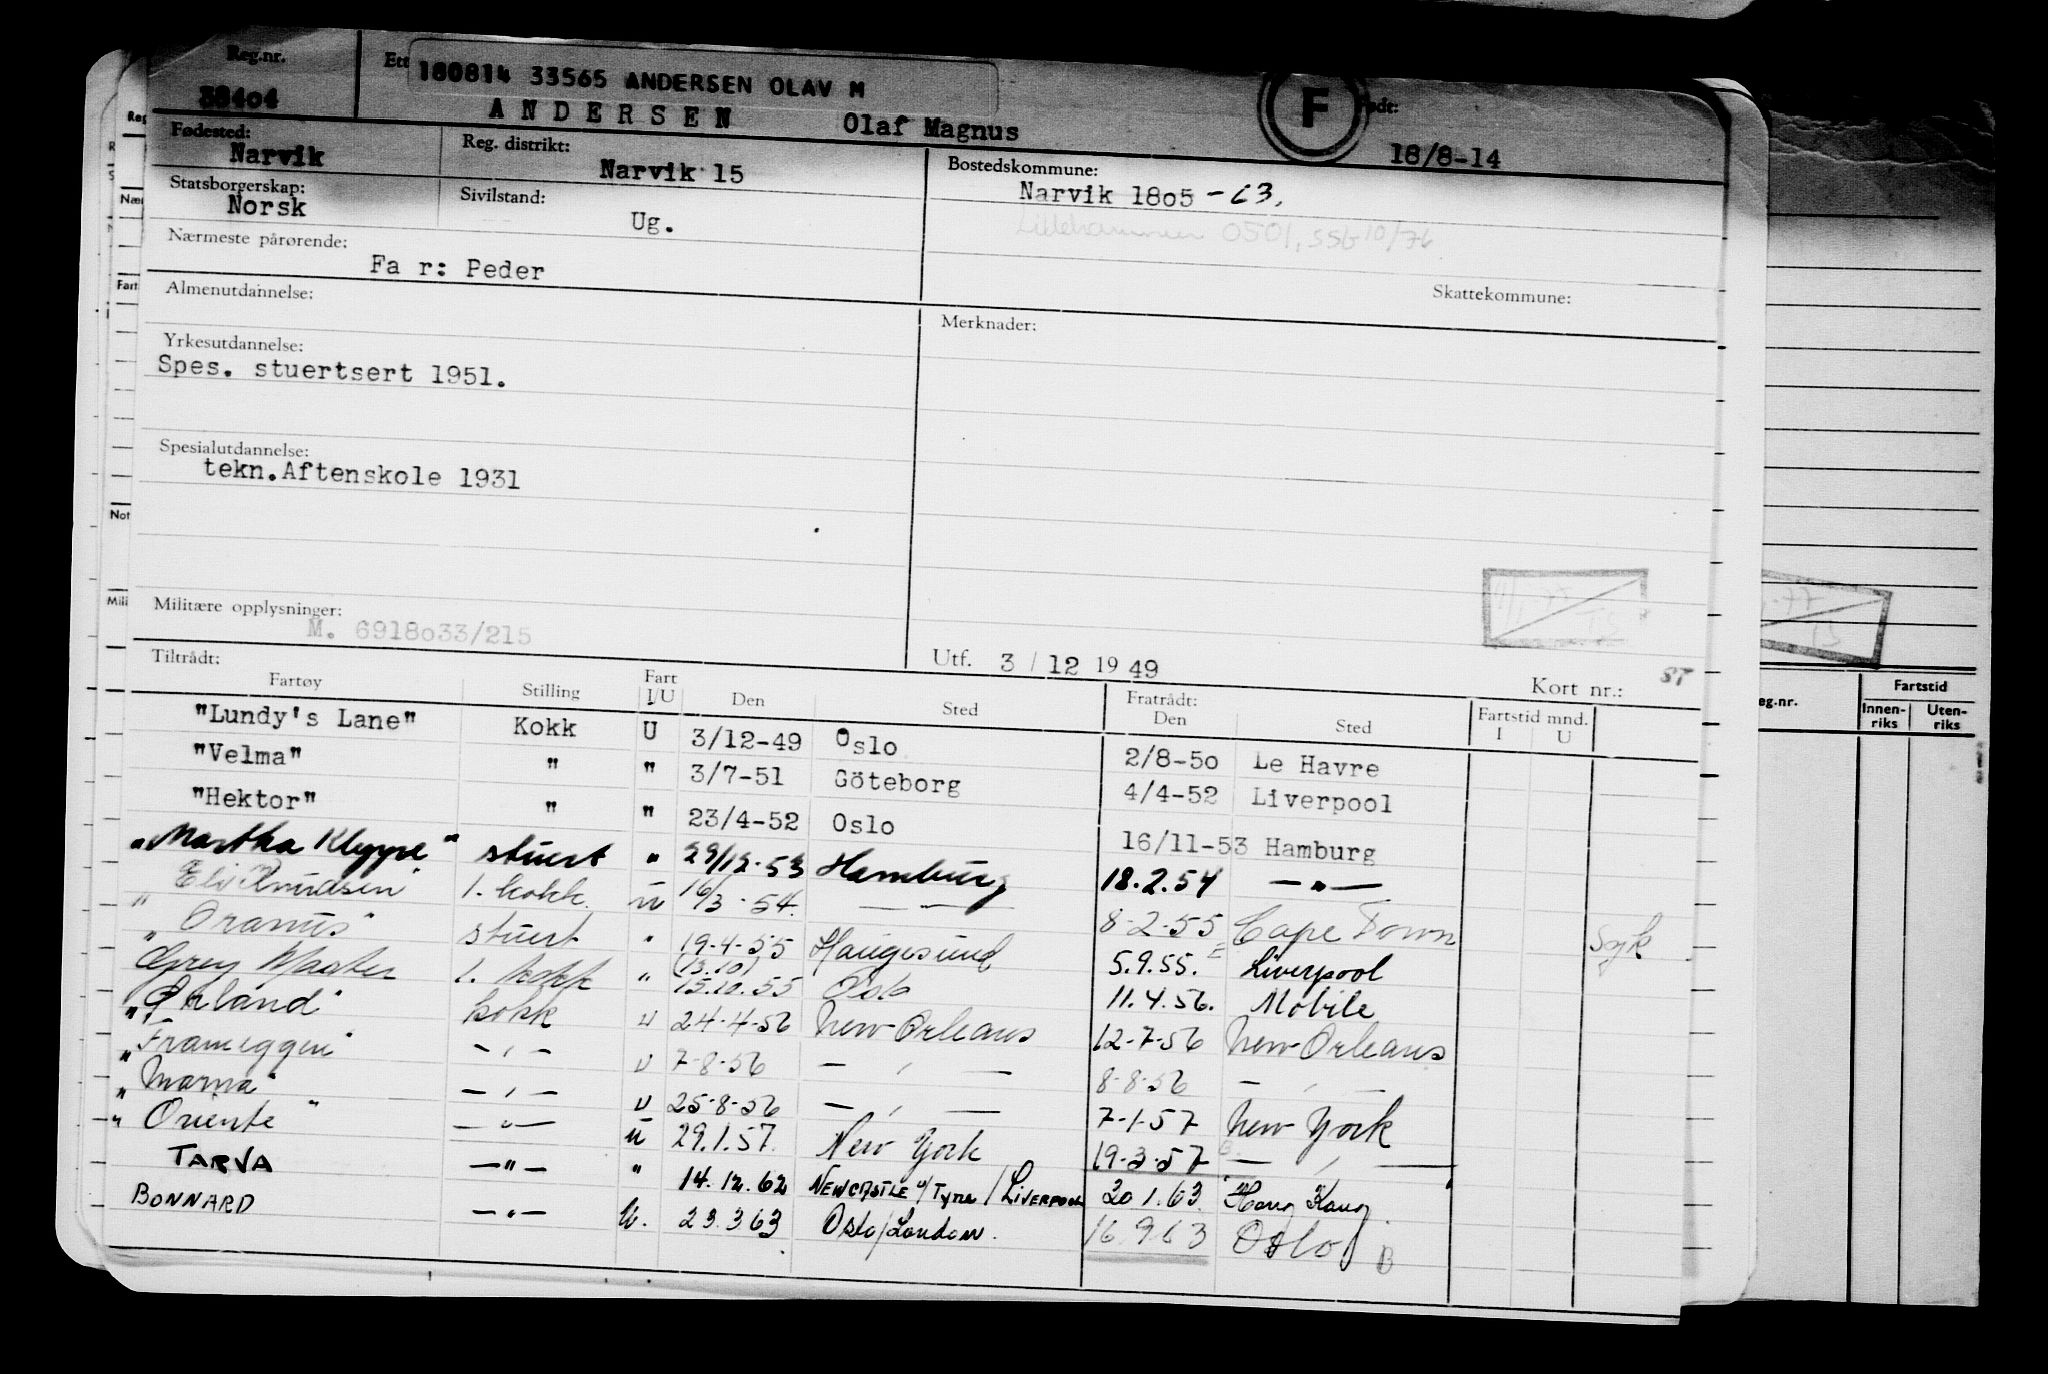 Reg.nr.
Ett
180814 33565 ANDERSEN OLAV M
38404
ANDERSEN Olaf Magnus
F
Født:
18/8-14
Fødested:
Narvik
Reg. distrikt:
Narvik 15
Bostedskommune:
Narvik 1805 - 63.
Statsborgerskap:
Norsk
Sivilstand:
Ug.
Lillehammer 0501, SSB 10/76
Nærmeste pårørende:
Fa r: Peder
Skattekommune:
Almenutdannelse:
Merknader:
Yrkesutdannelse:
Spes. stuertsert 1951.
Spesialutdannelse:
tekn.Aftenskole 1931
Militære opplysninger:
M. 6918o33/215
Utf. 3 / 12 19 49
Kort nr.:
ST
Tiltrådt:
Fartøy Stilling Fart I/U Den Sted Fratrådt: Den Sted Fartstid mnd. I U
"Lundy's Lane" Kokk U 3/12-49 Oslo 2/8-50 Le Havre
"Velma" " " 3/7-51 Göteborg 4/4-52 Liverpool
"Hektor" " " 23/4-52 Oslo 16/11-53 Hamburg
"Martha Kleppe" stuert " 29/12-53 Hamburg 18.2.54 — " —
" Elis Knudsen" 1. kokk. u 16/3-54. — — 8-2-55 Cape Town Syk
" Oranus" stuert " 19-4-55 Haugesund 5.9.55. Liverpool
Grey Master 1. kokk " (13.10) 15.10.55 Oslo 11.4.56. Mobile
"Ørland" kokk u 24-4-56 New Orleans 12-7-56 New Orleans
"Frameggen" — " — u 7-8-56 — " — 8-8-56 — " —
"Marna" — " — u 25-8-56 — " — 7-1-57 New York
"Oriente" — " — u 29.1.57. New York 19-3-57 — " —
TARVA — " — " 14.12.62 NEWCASTLE u/Tyne / LIVERPOOL 20.1.63. Hong Kong.
BONNARD — " — U. 23.3 63 Oslo/London. 16.9.63 Oslo B
eg.nr.
Fartstid
Innen-riks
Uten-riks